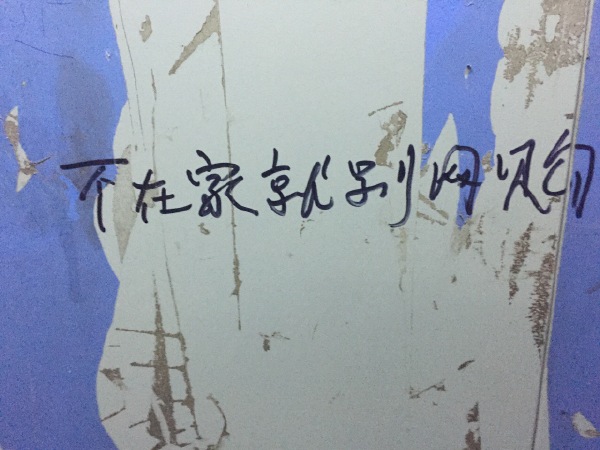 不在家就别网购